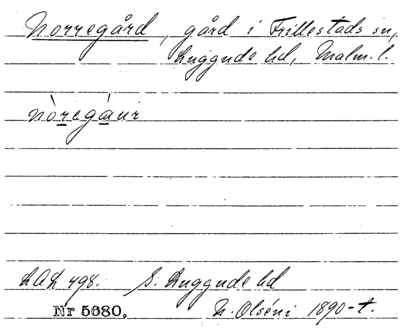 Norregård, gård i Frillestads sn,
Luggude hd, Malm. l.
nòregåur
LAL 498. S. Luggude hd
Nr 5680. N. Olséni 1890-t.